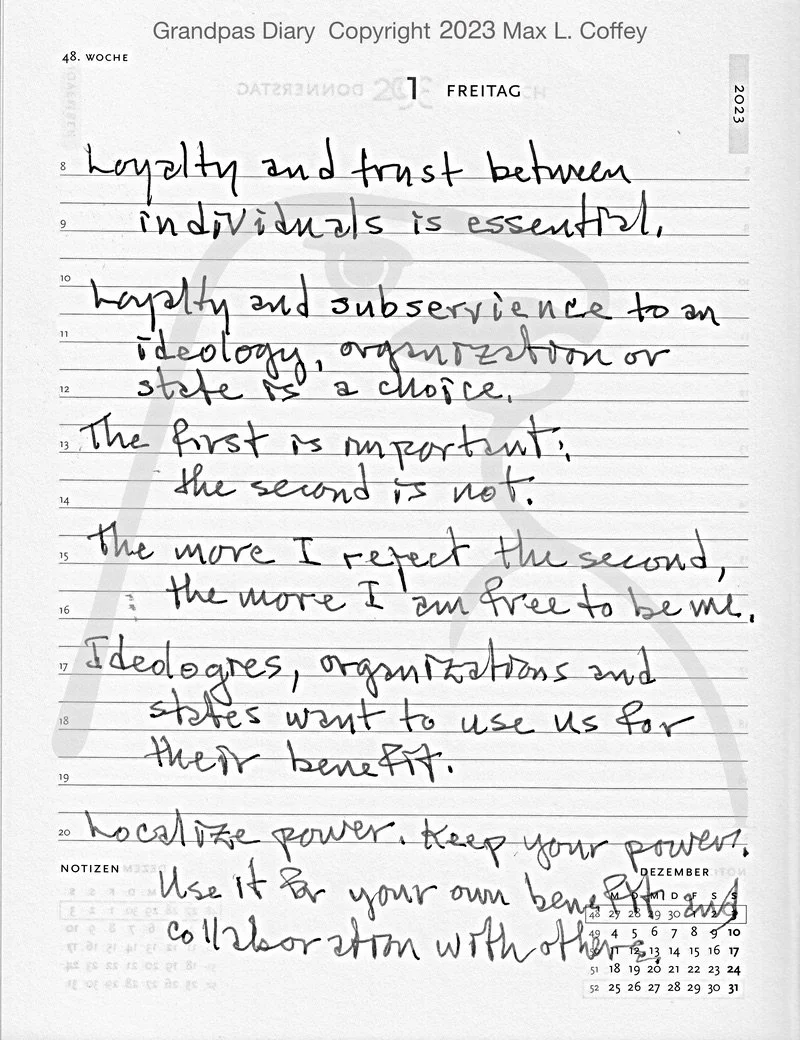 Grandpas Diary Copyright 2023 Max L. Coffey
48. WOCHE
1 FREITAG
2023
8 Loyalty and trust between
9 individuals is essential.
10 Loyalty and subservience to an
11 ideology, organization or
12 state is a choice.
13 The first is important;
14 the second is not.
15 The more I reject the second,
16 the more I am free to be me.
17 Ideologies, organizations and
18 states want to use us for
their benefit.
19
20 Localize power. Keep your power.
NOTIZEN
DEZEMBER
Use it for your own benefit and
collaboration with others.
M D M D F S S
48 27 28 29 30 1 2 3
49 4 5 6 7 8 9 10
11 12 13 14 15 16 17
51 18 19 20 21 22 23 24
52 25 26 27 28 29 30 31